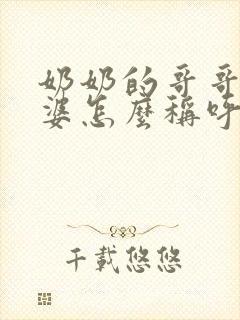 奶奶的哥哥
婆怎麼稱呼
千載悠悠